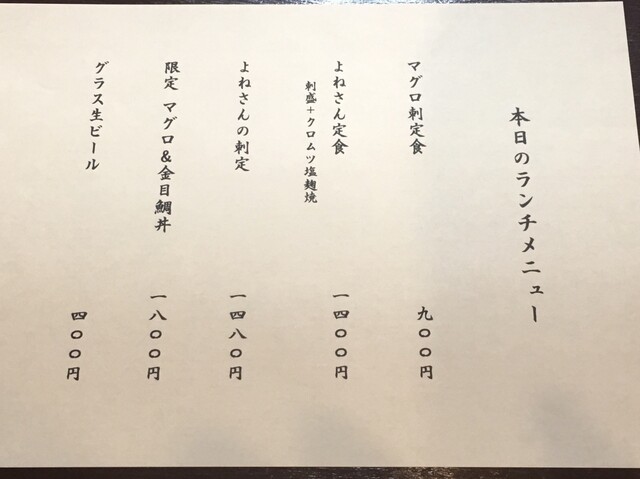 本日のランチメニュー
マグロ刺定食 九〇〇円
よねさん定食 一四〇〇円
刺盛+クロムツ塩麹焼
よねさんの刺定 一四八〇円
限定 マグロ&金目鯛丼 一八〇〇円
グラス生ビール 四〇〇円